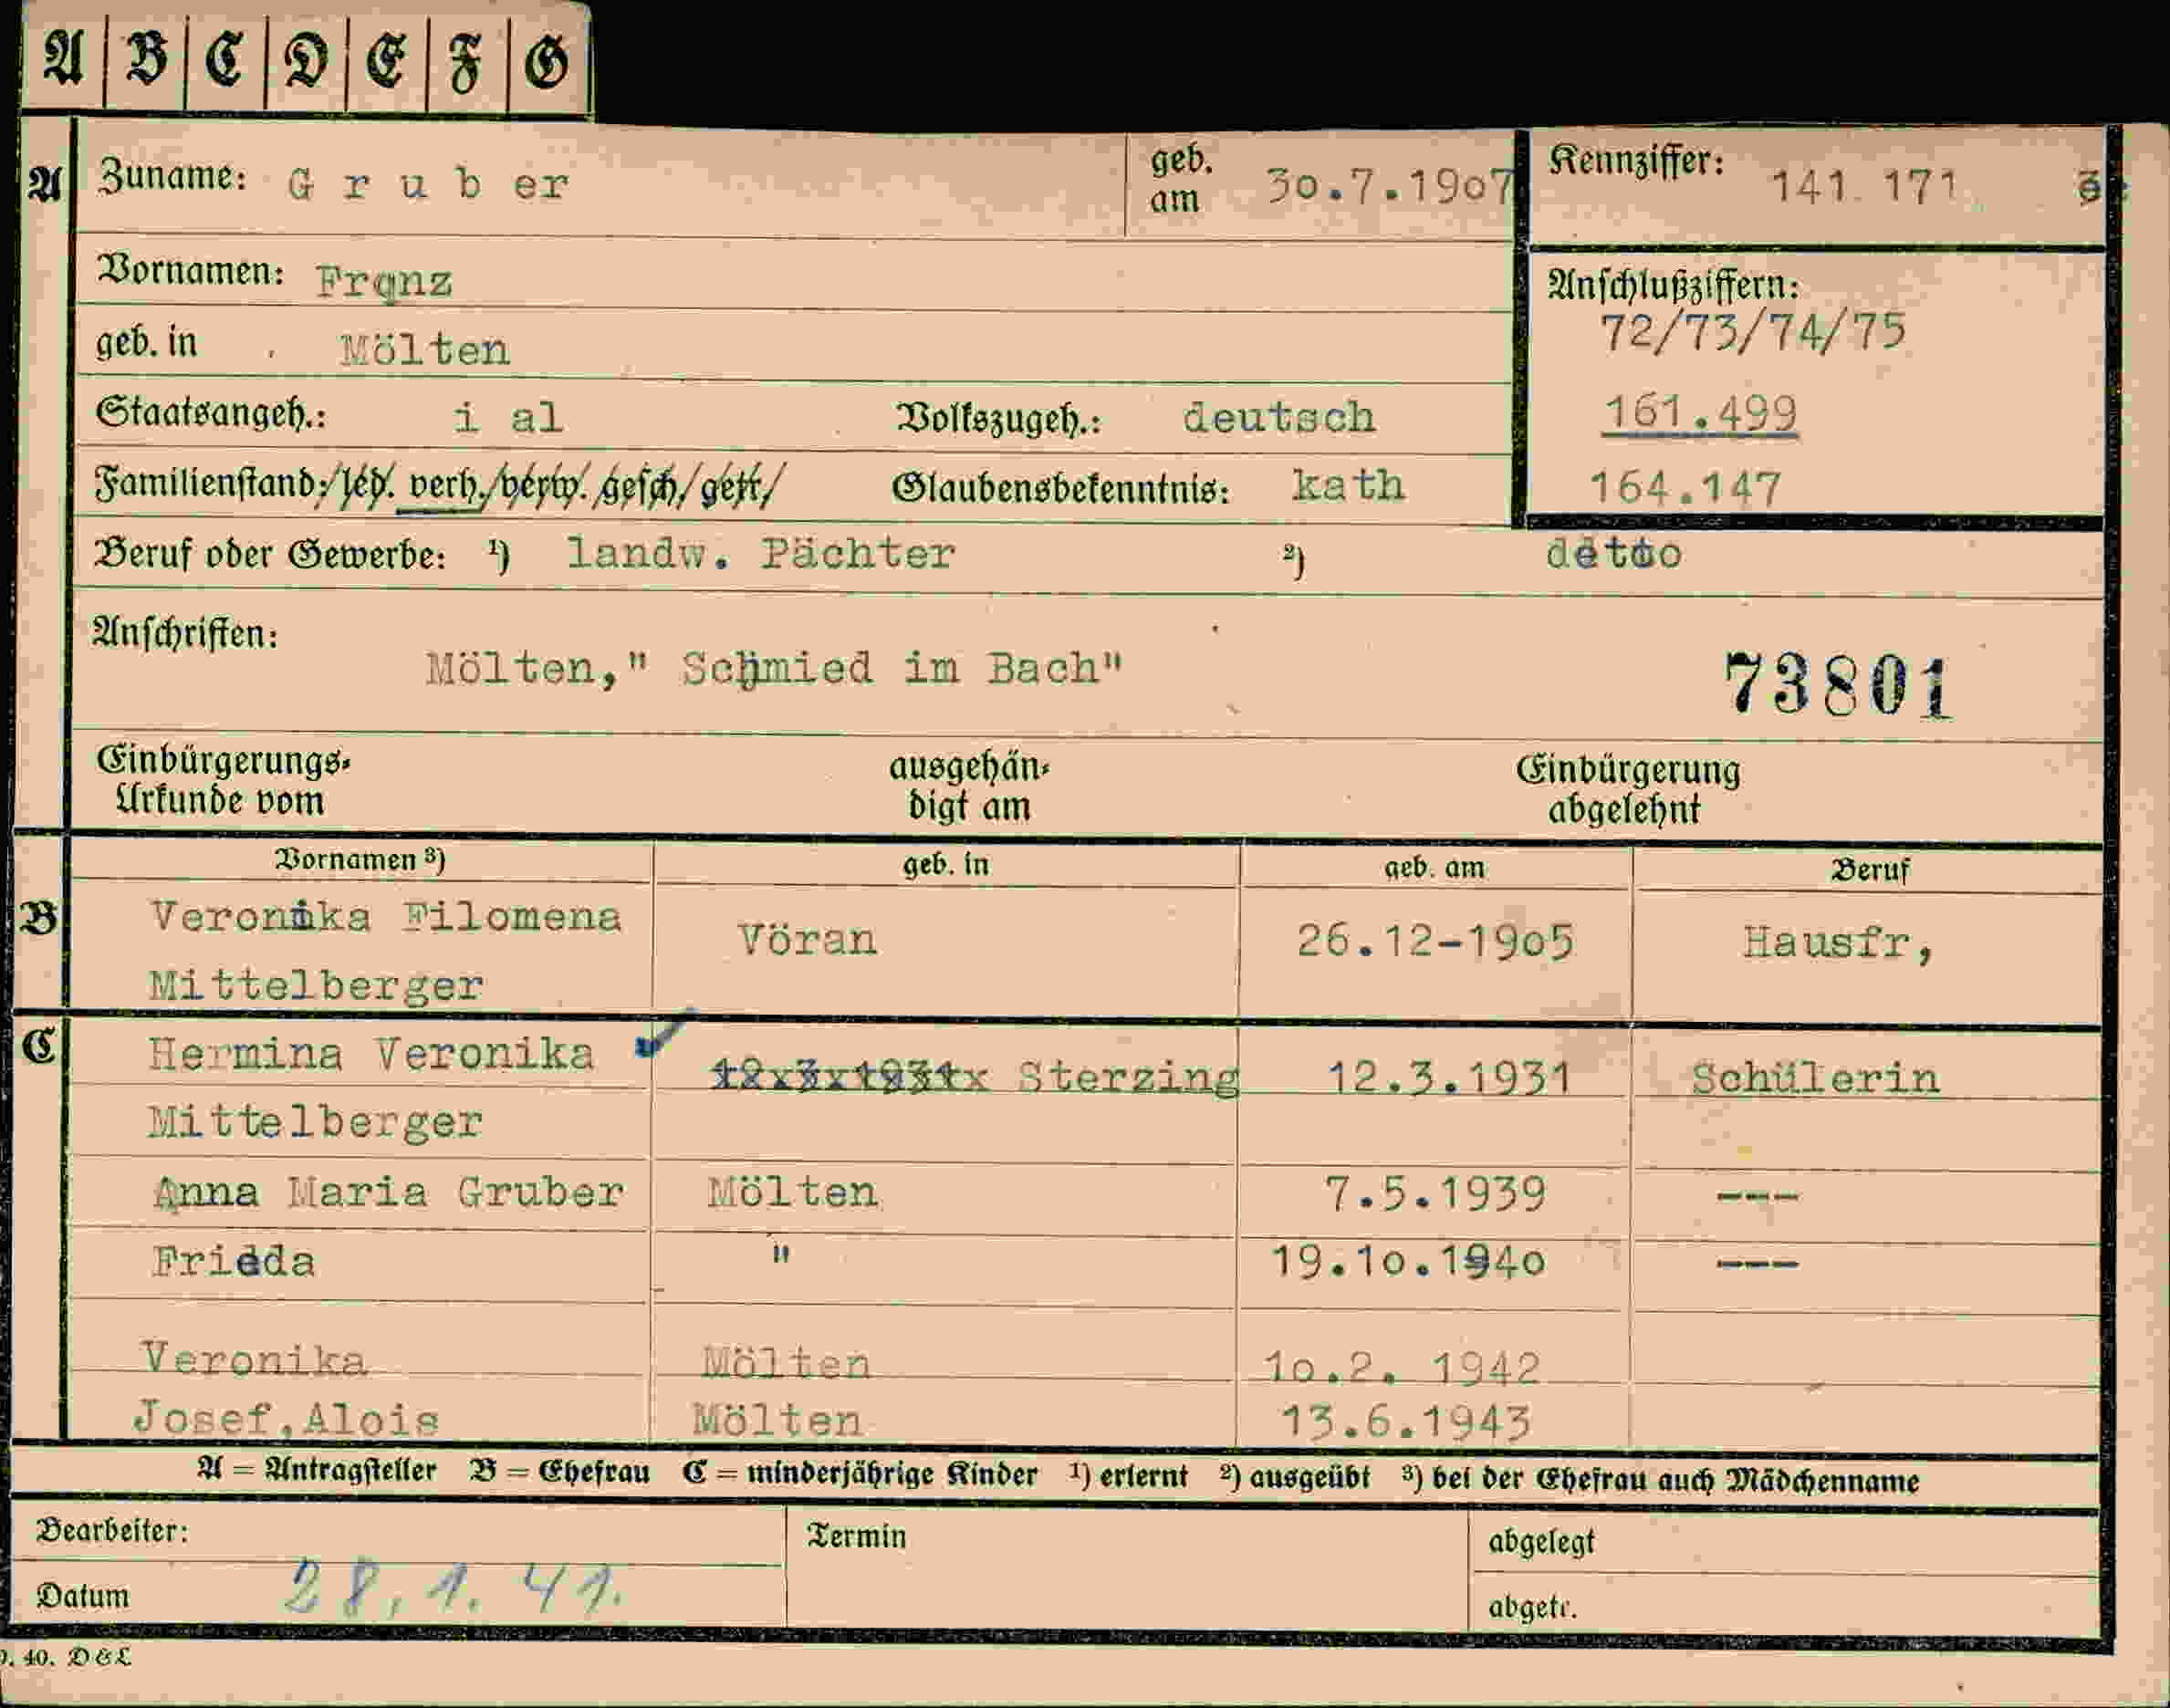 A B C D E F G
A Zuname: G r u b er geb. am 30.7.1907 Kennziffer: 141.171
Vornamen: Franz Anschlußziffern:
72/73/74/75
geb. in Mölten
Staatsangeh.: i al Volkszugeh.: deutsch 161.499
Familienstand: led. verh. verw. gesch. getr. Glaubensbekenntnis: kath 164.147
Beruf oder Gewerbe: ¹) landw. Pächter ²) detto
Anschriften:
Mölten," Schmied im Bach" 73801
Einbürgerungs- ausgehän- Einbürgerung
Urkunde vom digt am abgelehnt
Vornamen ³) geb. in geb. am Beruf
B Veronika Filomena Vöran 26.12-1905 Hausfr,
Mittelberger
C Hermina Veronika 12x3x1931x Sterzing 12.3.1931 Schülerin
Mittelberger
Anna Maria Gruber Mölten 7.5.1939 ---
Frieda " 19.10.1940 ---
Veronika Mölten 10.2. 1942
Josef,Alois Mölten 13.6.1943
A = Antragsteller B = Ehefrau C = minderjährige Kinder ¹) erlernt ²) ausgeübt ³) bei der Ehefrau auch Mädchenname
Bearbeiter: Termin abgelegt
Datum 28.1.41. abgetr.
40. D & L